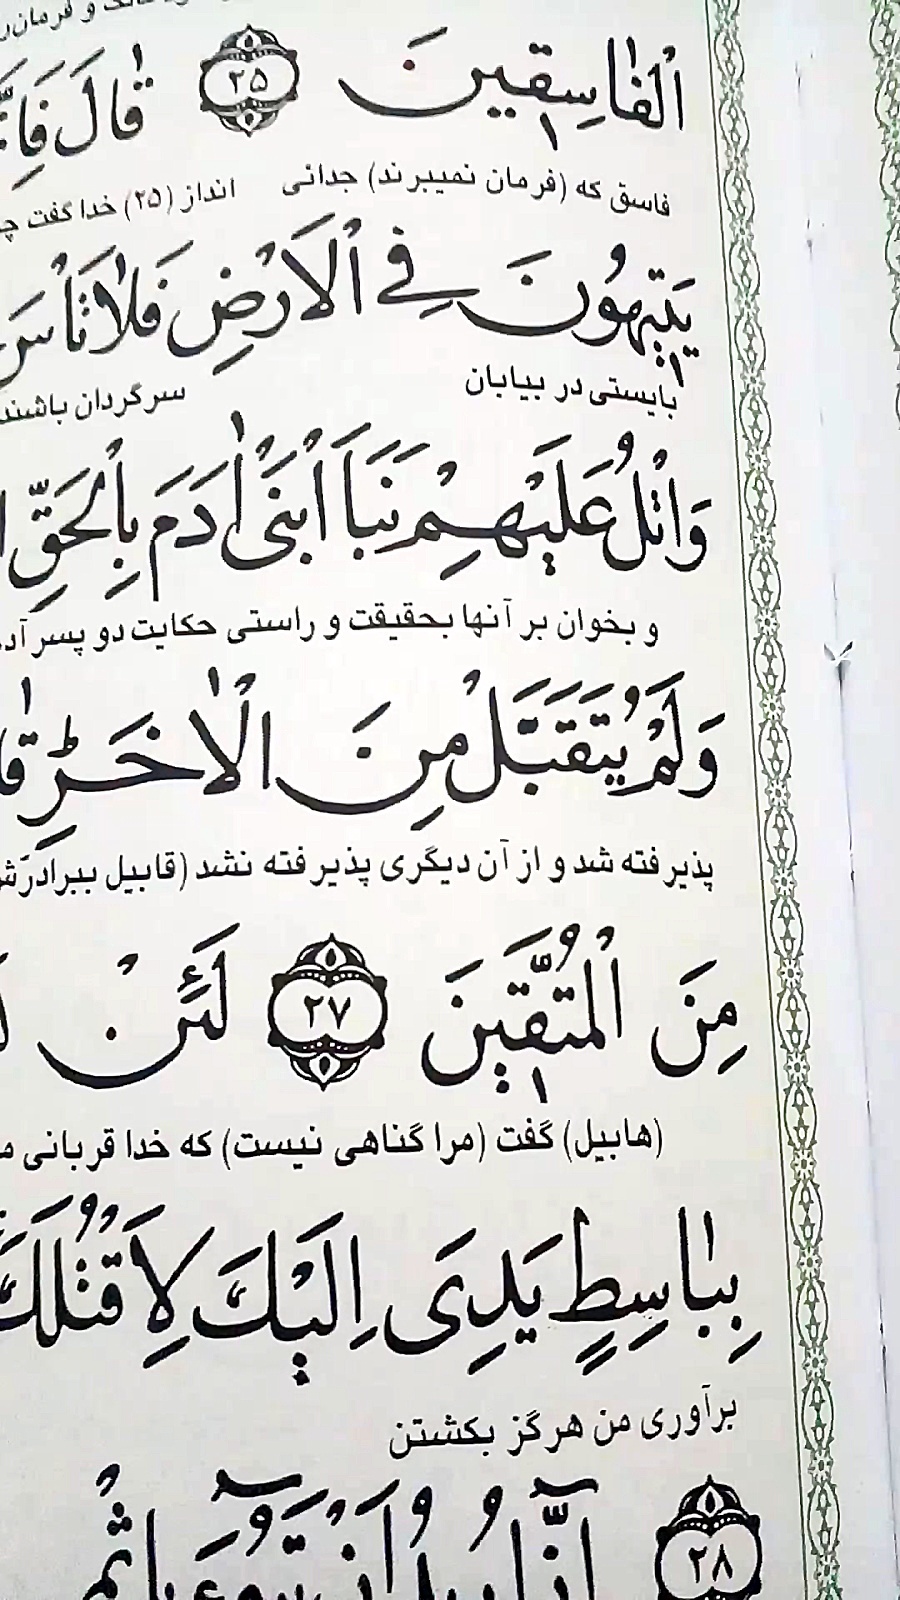 ٱلْفٰاسِقينَ ۲۵ قٰالَ
فاسق که (فرمان نمیبرند) جدائی انداز (۲۵) خدا گفت
يَتيهُونَ فِى ٱلْاَرْضِ فَلٰا تَأْسَ
بایستی در بیابان سرگردان باشند
وَٱتْلُ عَلَيْهِمْ نَبَاَ ٱبْنَىْ اٰدَمَ بِٱلْحَقِّ
و بخوان بر آنها بحقیقت و راستی حکایت دو پسر
وَلَمْ يُتَقَبَّلْ مِنَ ٱلْاٰخَرِ
پذیرفته شد و از آن دیگری پذیرفته نشد (قابیل ببرادرش
مِنَ ٱلْمُتَّقينَ ۲۷ لَئِنْ
(هابیل) گفت (مرا گناهی نیست) که خدا قربانی
بِبٰاسِطٍ يَدِىَ اِلَيْكَ لِاَقْتُلَكَ
برآوری من هرگز بکشتن
۲۸ اِنّٓى اُريدُ اَنْ تَبُوٓءَ بِاِثْمى